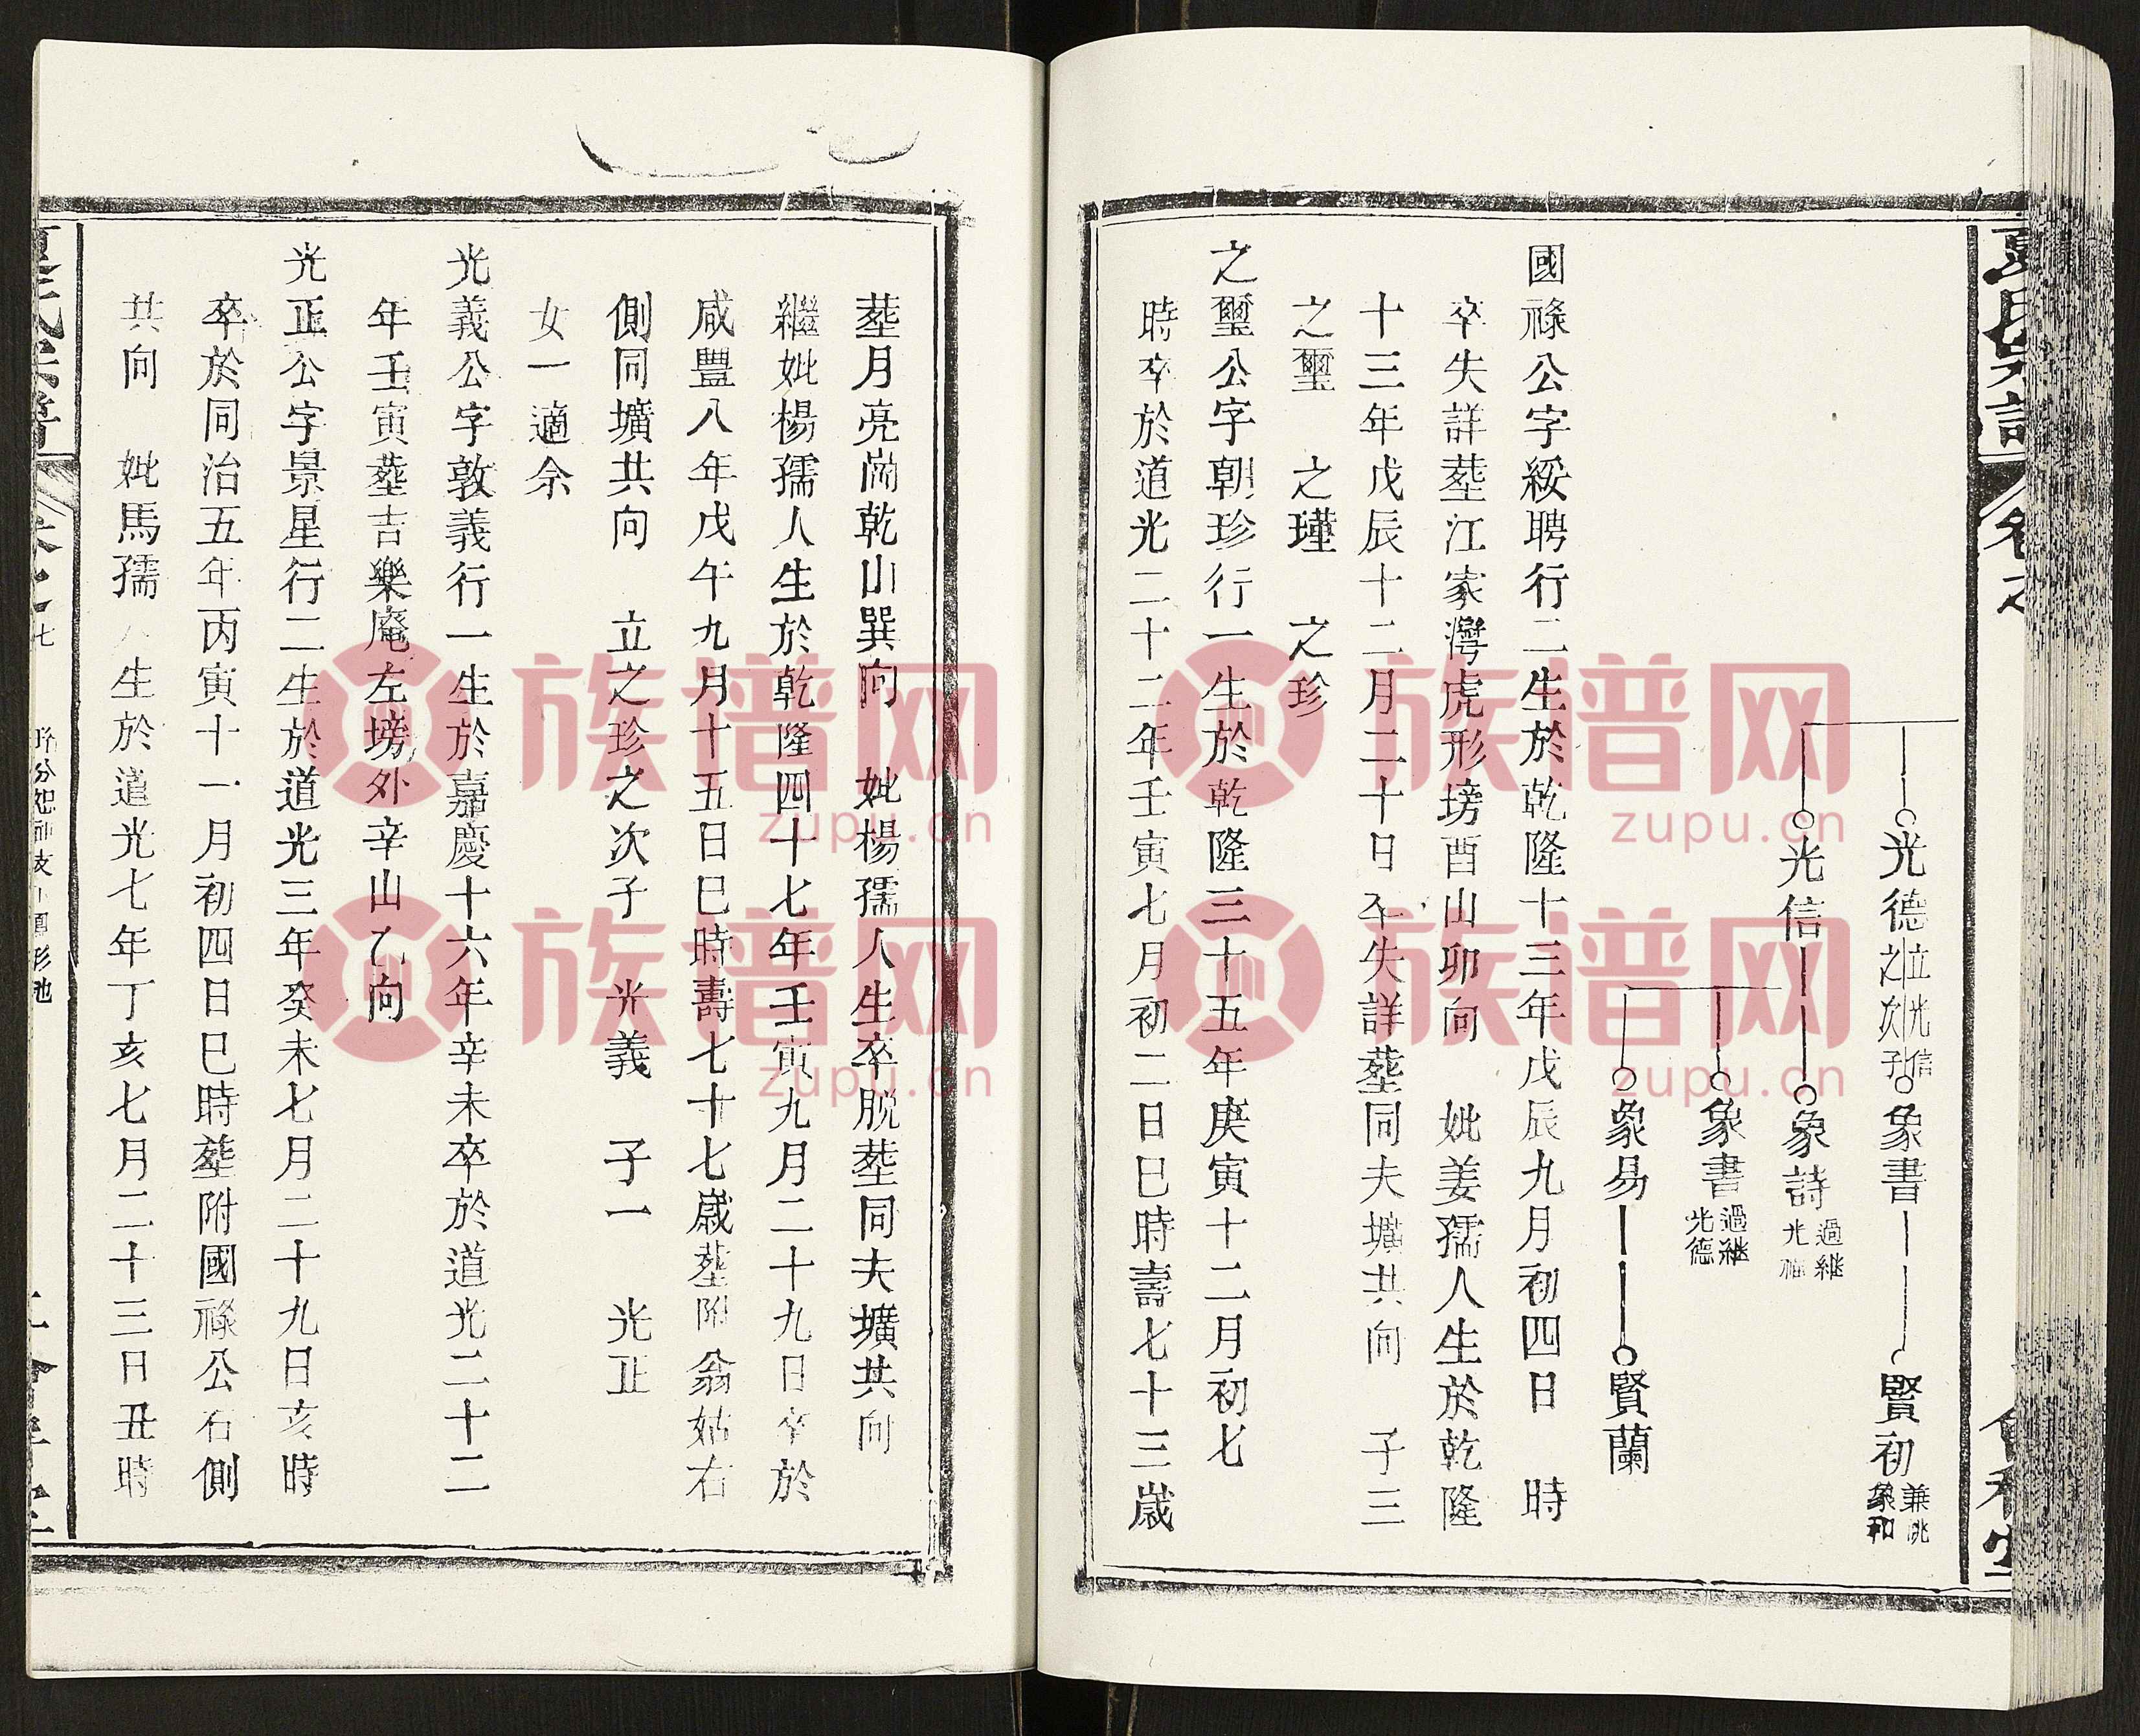 夏氏宗譜
卷之
光德 立光信之次子 象書 賢初 兼祧象和
光信 象詩 過継光福
象書 過継光德
象易 賢蘭
國祿公字綏聘行二生於乾隆十三年戊辰九月初四日 時
卒失詳塟江家灣虎形塝酉山卯向 妣姜孺人生於乾隆
十三年戊辰十二月二十日卒失詳塟同夫壙共向 子三
之璽 之瑾 之珍
之璽公字朝珍行一生於乾隆三十五年庚寅十二月初七
時卒於道光二十二年壬寅七月初二日巳時壽七十三歲
塟月亮崗乾山巽向 妣楊孺人生卒脱塟同夫壙共向
繼妣楊孺人生於乾隆四十七年壬寅九月二十九日卒於
咸豐八年戊午九月十五日巳時壽七十七歲塟附翁姑右
側同壙共向 立之珍之次子 光義 子一 光正
女一適余
光義公字敦義行一生於嘉慶十六年辛未卒於道光二十二
年壬寅塟吉樂庵左塝外辛山乙向
光正公字景星行二生於道光三年癸未七月二十九日亥時
卒於同治五年丙寅十一月初四日巳時塟附國祿公右側
共向 妣馬孺人生於道光七年丁亥七月二十三日丑時
七
族谱网
zupu.cn
族谱网
zupu.cn
族谱网
zupu.cn
族谱网
zupu.cn